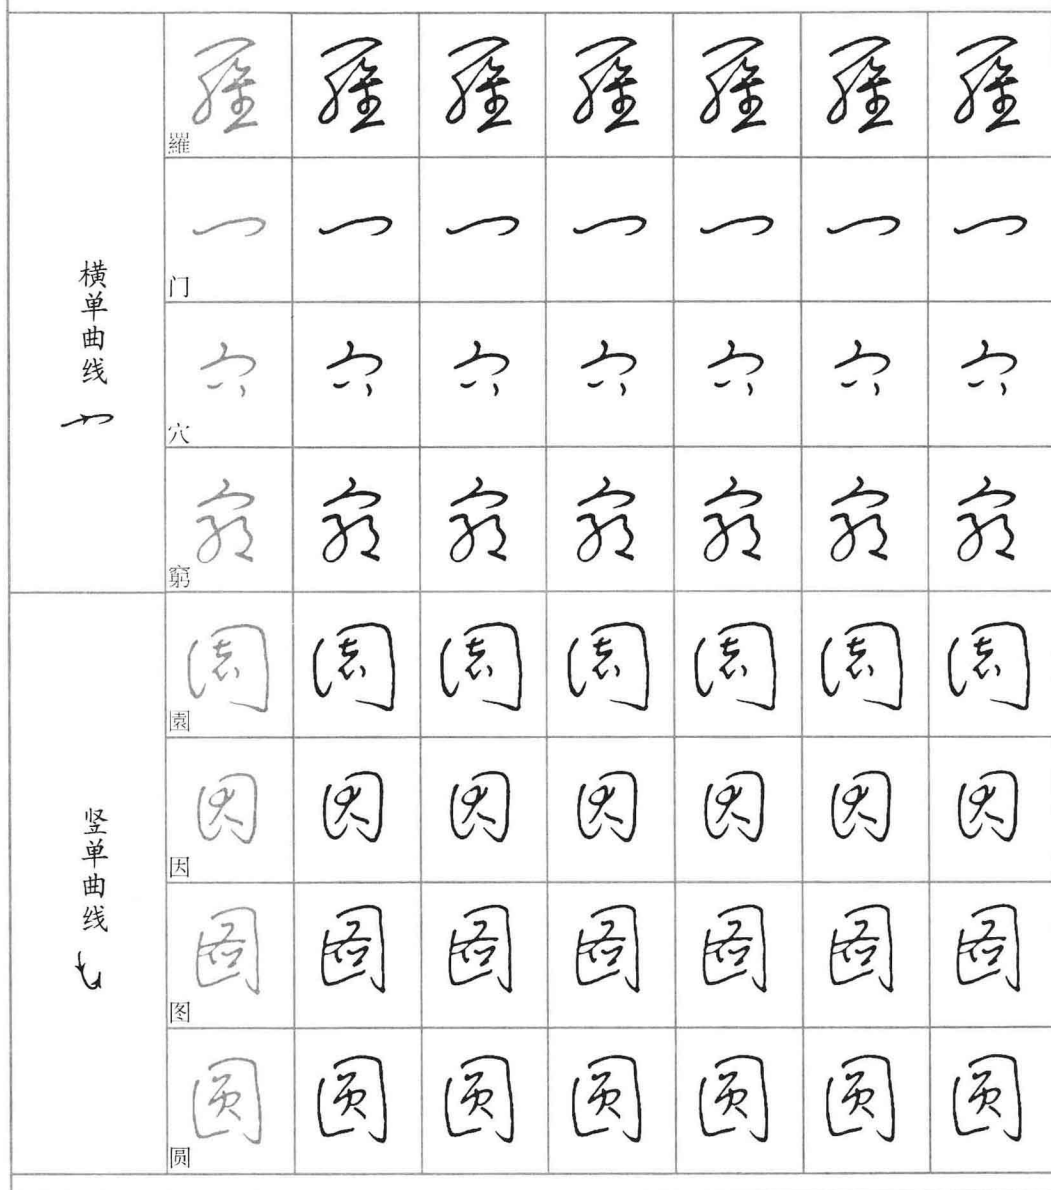 横单曲线
羅 羅 羅 羅 羅 羅 羅
羅
门 门 门 门 门 门 门
门
穴 穴 穴 穴 穴 穴 穴
穴
窮 窮 窮 窮 窮 窮 窮
窮
竖单曲线
園 園 園 園 園 園 園
園
因 因 因 因 因 因 因
因
图 图 图 图 图 图 图
图
圆 圆 圆 圆 圆 圆 圆
圆